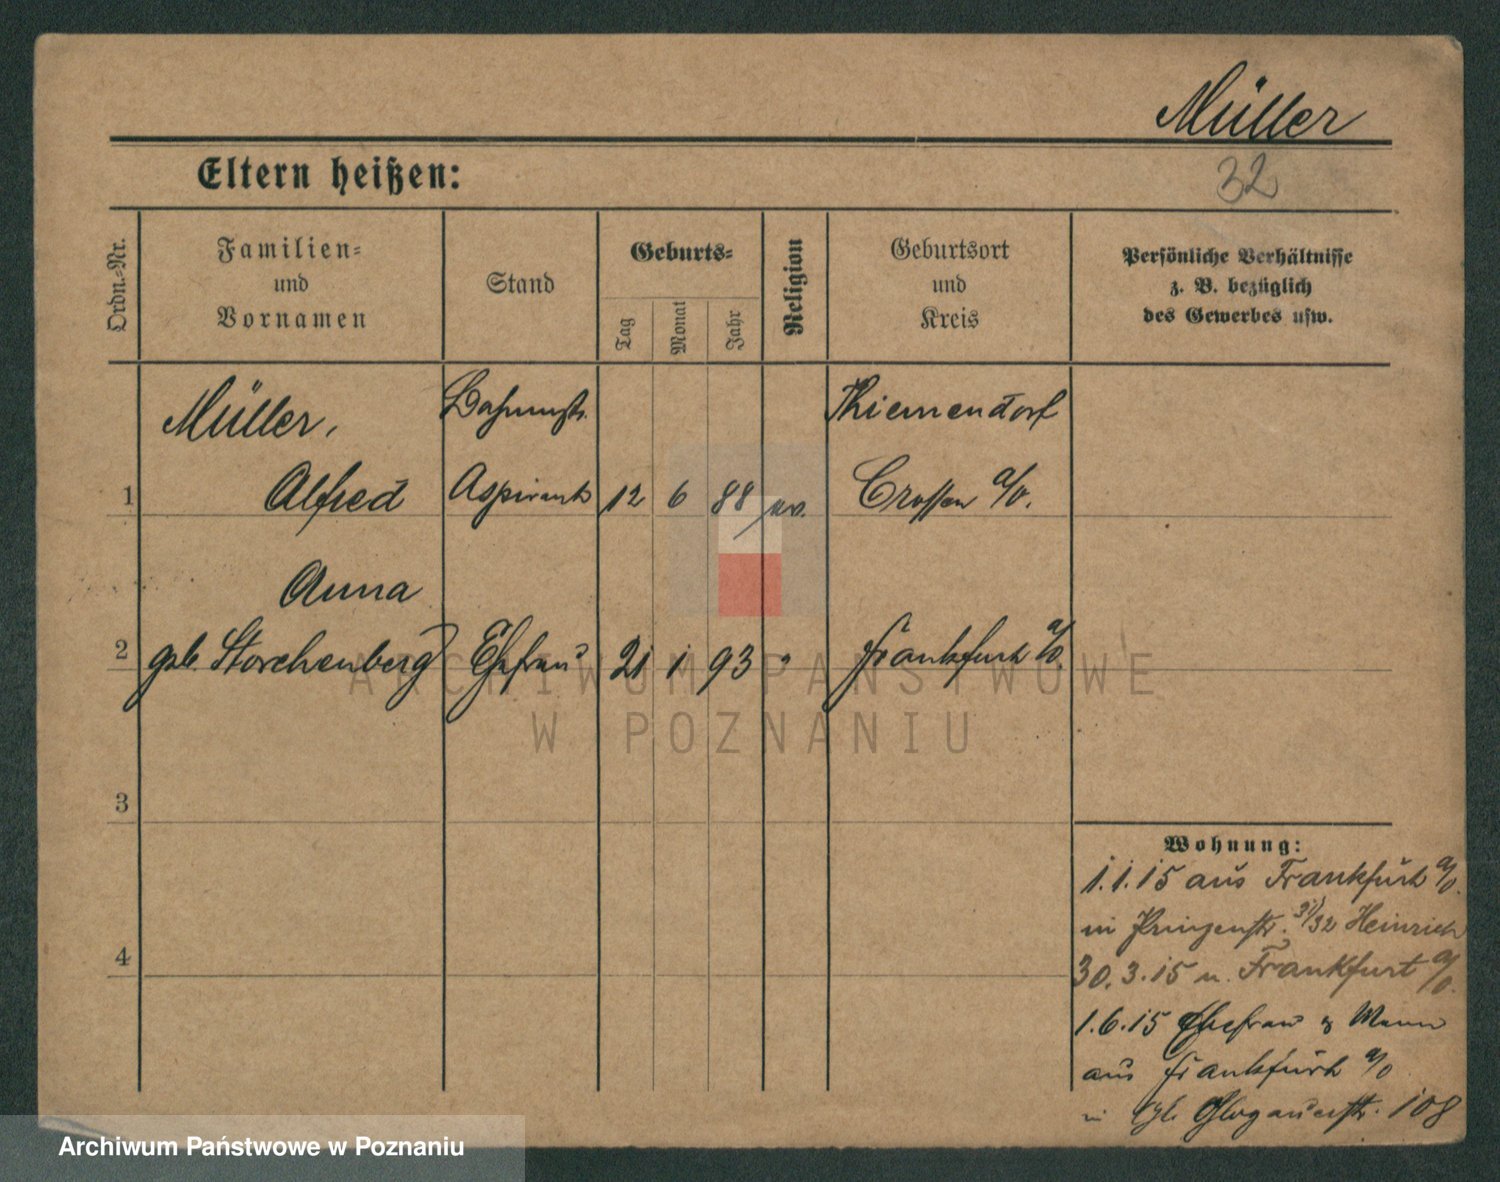 Müller
32
Eltern heißen:
Ordn.-Nr.
Familien-
und
Vornamen
Stand
Geburts-
Tag
Monat
Jahr
Religion
Geburtsort
und
Kreis
Persönliche Verhältnisse
z. B. bezüglich
des Gewerbes usw.
Müller,
Thiemendorf
1 Alfred Aspirant 12 6 88 ev. Crossen a/O.
Anna
2 geb. Storchenberg Ehefrau 21 1 93 " Frankfurt a/O.
3
4
Wohnung:
1.1.15 aus Frankfurt a/O.
in Prinzenstr. 31/32 Heinrich
30.3.15 n. Frankfurt a/O.
1.6.15 Ehefrau z Mann
aus Frankfurt a/O
in Glogauerstr. 108
ARCHIWUM PAŃSTWOWE
W POZNANIU
Archiwum Państwowe w Poznaniu